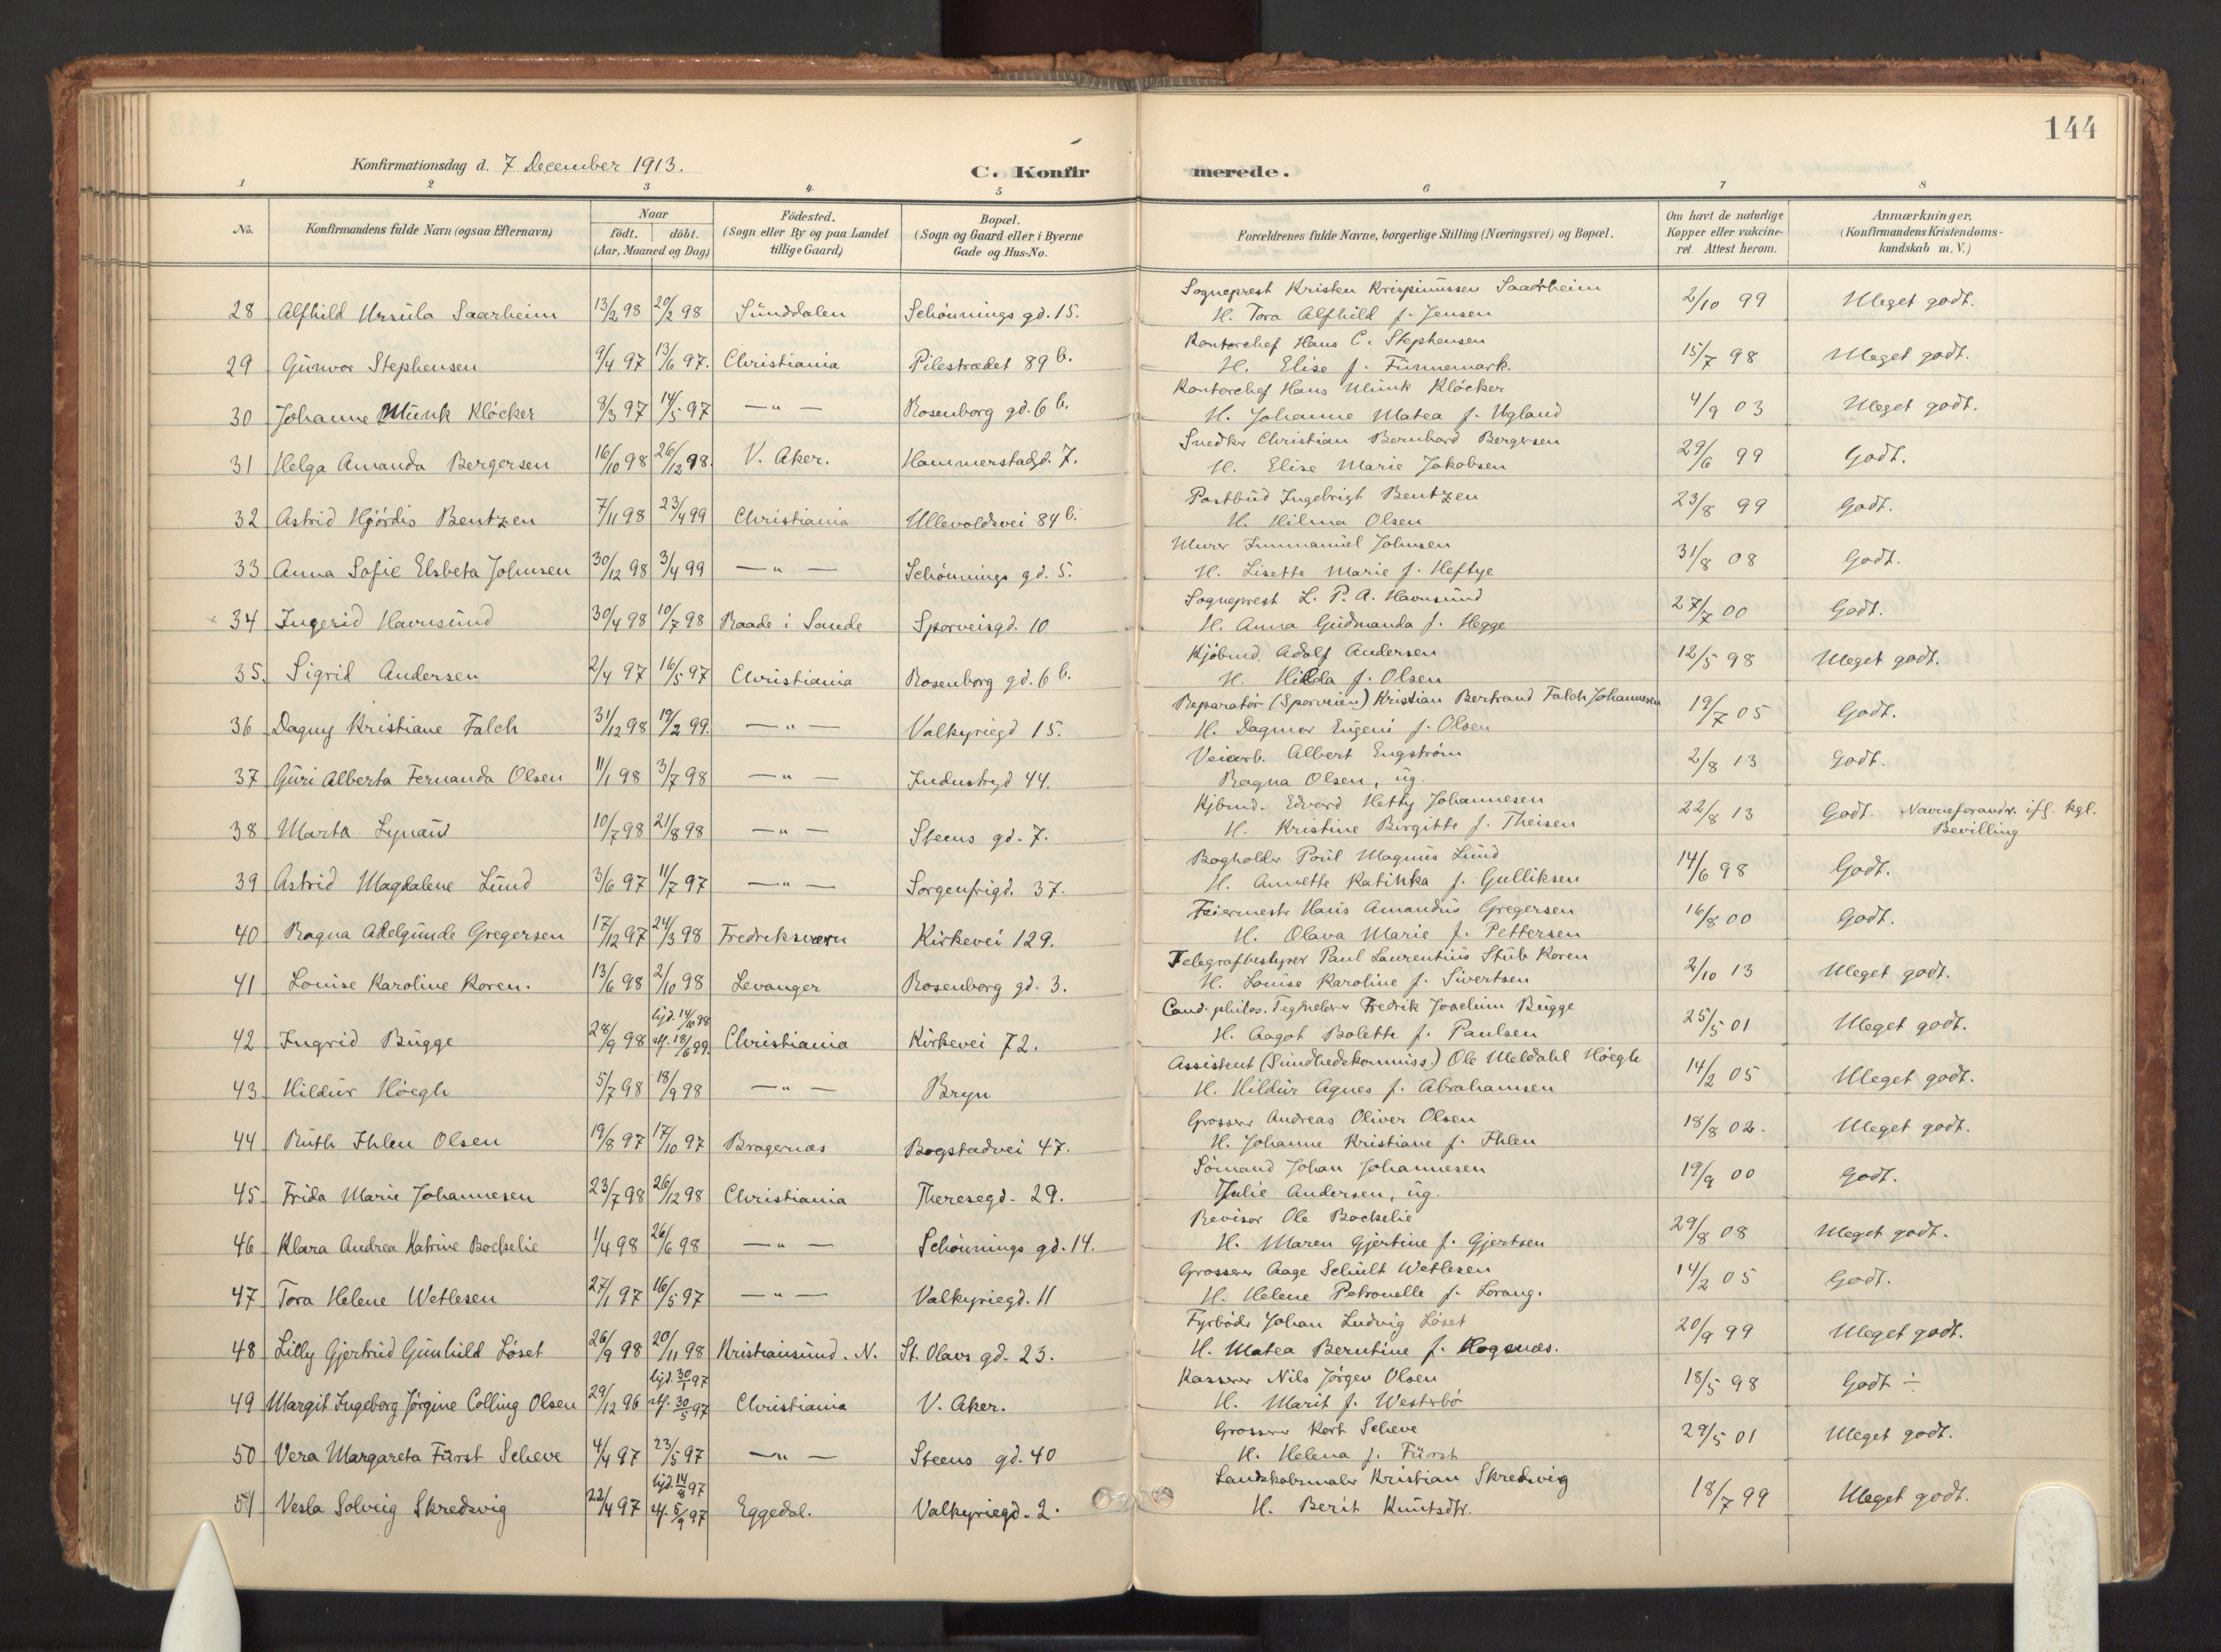 144
Konfirmationsdag d. 7 December 1913.
C. Konfirmerede.
1 2 3 4 5 6 7 8
No.
Konfirmandens fulde Navn (ogsaa Efternavn)
Naar
født. døbt.
(Aar, Maaned og Dag)
Fødested.
(Sogn eller By og paa Landet
tillige Gaard)
Bopæl.
(Sogn og Gaard eller i Byerne
Gade og Hus-No.
Forældrenes fulde Navne, borgerlige Stilling (Næringsvei) og Bopæl.
Om havt de naturlige
Kopper eller vakcine-
ret. Attest herom.
Anmærkninger.
(Konfirmandens Kristendoms-
kundskab m. V.)
28 Alfhild Ursula Saarheim 13/2 98 20/2 98 Sunddalen Schønnings gd. 15. Sogneprest Kristen Krispinussen Saarheim 2/10 99 Meget godt.
H. Tora Alfhild f. Jensen
29 Gunvor Stephensen 9/4 97 13/6 97. Christiania Pilestrædet 89 b. Kontorchef Hans C. Stephensen 15/7 98 Meget godt.
H. Elise f. Finnemark.
30 Johanne Munk Kløcker 8/3 97 14/5 97 — " — Rosenborg gd. 6 b. Kontorchef Hans Munk Kløcker 4/9 03 Meget godt.
H. Johanne Matea f. Ugland
31 Helga Amanda Bergersen 16/10 98 26/12 98. V. Aker. Hammerstadgd. 7. Snedker Christian Bernhard Bergersen 29/6 99 Godt.
H. Elise Marie Jakobsen
32 Astrid Hjørdis Bentzen 7/11 98 23/4 99 Christiania Ullevoldsvei 84 b. Postbud Ingebrigt Bentzen 23/8 99 Godt.
H. Hilma Olsen
33 Anna Sofie Elsbeta Johnsen 30/12 98 3/4 99 — " — Schønnings gd. 5. Murer Immanuel Johnsen 31/8 08 Godt.
H. Lisette Marie f. Heftye
× 34 Ingerid Havnsund 30/4 98 10/7 98 Raade i Sande Sporveisgd. 10 Sogneprest L. P. A. Havnsund 27/7 00 Godt.
H. Anna Gudmanda f. Hegge
35. Sigrid Andersen 2/4 97 16/5 97 Christiania Rosenborg gd. 6 b. Kjøbmd. Adolf Andersen 12/5 98 Meget godt.
H. Hilda f. Olsen
36 Dagny Kristiane Falch 31/12 98 19/2 99. — " — Valkyriegd 15. Reparatør (Sporveien) Kristian Bertrand Falch Johannesen 19/7 05 Godt.
H. Dagmar Eugeni f. Olsen
37 Guri Alberta Fernanda Olsen 11/1 98 3/7 98 — " — Industrigd 44. Veiarb. Albert Engstrøm 2/8 13 Godt.
Ragna Olsen, ug.
38 Marta Lynau 10/7 98 21/8 98 — " — Steens gd. 7. Kjbmd. Edvard Hetty Johannesen 22/8 13 Godt. Navneforandr. ifl. kgl.
H. Kristine Birgitte f. Theisen Bevilling
39 Astrid Magdalene Lund 3/6 97 11/7 97 — " — Sorgenfrigd. 37. Bogholder Poul Magnus Lund 14/6 98 Godt.
H. Annette Katinka f. Gulliksen
40 Ragna Adelgunde Gregersen 17/12 97 24/3 98 Fredriksværn Kirkevei 129. Feiermestr Hans Amandus Gregersen 16/8 00 Godt.
H. Olava Marie f. Pettersen
41 Louise Karoline Koren. 13/6 98 2/10 98 Levanger Rosenborg gd. 3. Telegrafbestyrer Paul Laurentius Stub Koren 2/10 13 Meget godt.
H. Louise Karoline f. Sivertsen
42 Ingrid Bugge 28/9 98 hjd. 14/10 98 stf. 18/6 99. Christiania Kirkevei 72. Cand. philos. Teghelærer Fredrik Joachim Bugge 25/5 01 Meget godt.
H. Aagot Bolette f. Paulsen
43 Hildur Høegh 5/7 98 18/9 98 — " — Bryn Assistent (Sundhedskommiss.) Ole Meldahl Høegh 14/2 05 Meget godt.
H. Hildur Agnes f. Abrahamsen
44 Ruth Ihlen Olsen 19/8 97 17/10 97 Bragernæs Bogstadvei 47. Grosserer Andreas Oliver Olsen 18/8 02. Meget godt.
H. Johanne Kristiane f. Ihlen
45 Frida Marie Johannesen 23/7 98 26/12 98 Christiania Theresegd. 29. Sømand Johan Johannesen 19/9 00 Godt.
Julie Andersen, ug.
46 Klara Andrea Katrine Bockelie 1/4 98 26/6 98 — " — Schønnings gd. 14. Revisor Ole Bockelie 29/8 08 Meget godt.
H. Maren Gjertine f. Gjertsen
47 Tora Helene Wetlesen 27/1 97 16/5 97 — " — Valkyriegd. 11 Grosserer Aage Schult Wetlesen 14/2 05 Godt.
H. Helene Petronelle f. Lorang.
48 Lilly Gjertrud Gunhild Løset 26/9 98 20/11 98 Kristiansund. N. St. Olavs gd. 23. Fyrbøder Johan Ludvig Løset 20/9 99 Meget godt.
H. Matea Berntine f. Hognæs.
49 Margit Ingeborg Jørgine Colling Olsen 29/12 96 hjd. 30/1 97 stf. 30/5 97 Christiania V. Aker. Kasserer Nils Jørgen Olsen 18/5 98 Godt ÷
H. Marit f. Westerbø
50 Vera Margareta Fürst Scheve 4/4 97 23/5 97 — " — Steens gd. 40 Grosserer Kort Scheve 29/5 01 Meget godt.
H. Helena f. Fürst
51 Vesla Solveig Skredsvig 22/4 97 hjd. 14/8 97 stf. 5/9 97 Eggedal. Valkyriegd. 2. Landskabsmaler Kristian Skredsvig 18/7 99 Meget godt.
H. Berit Knutsdtr.